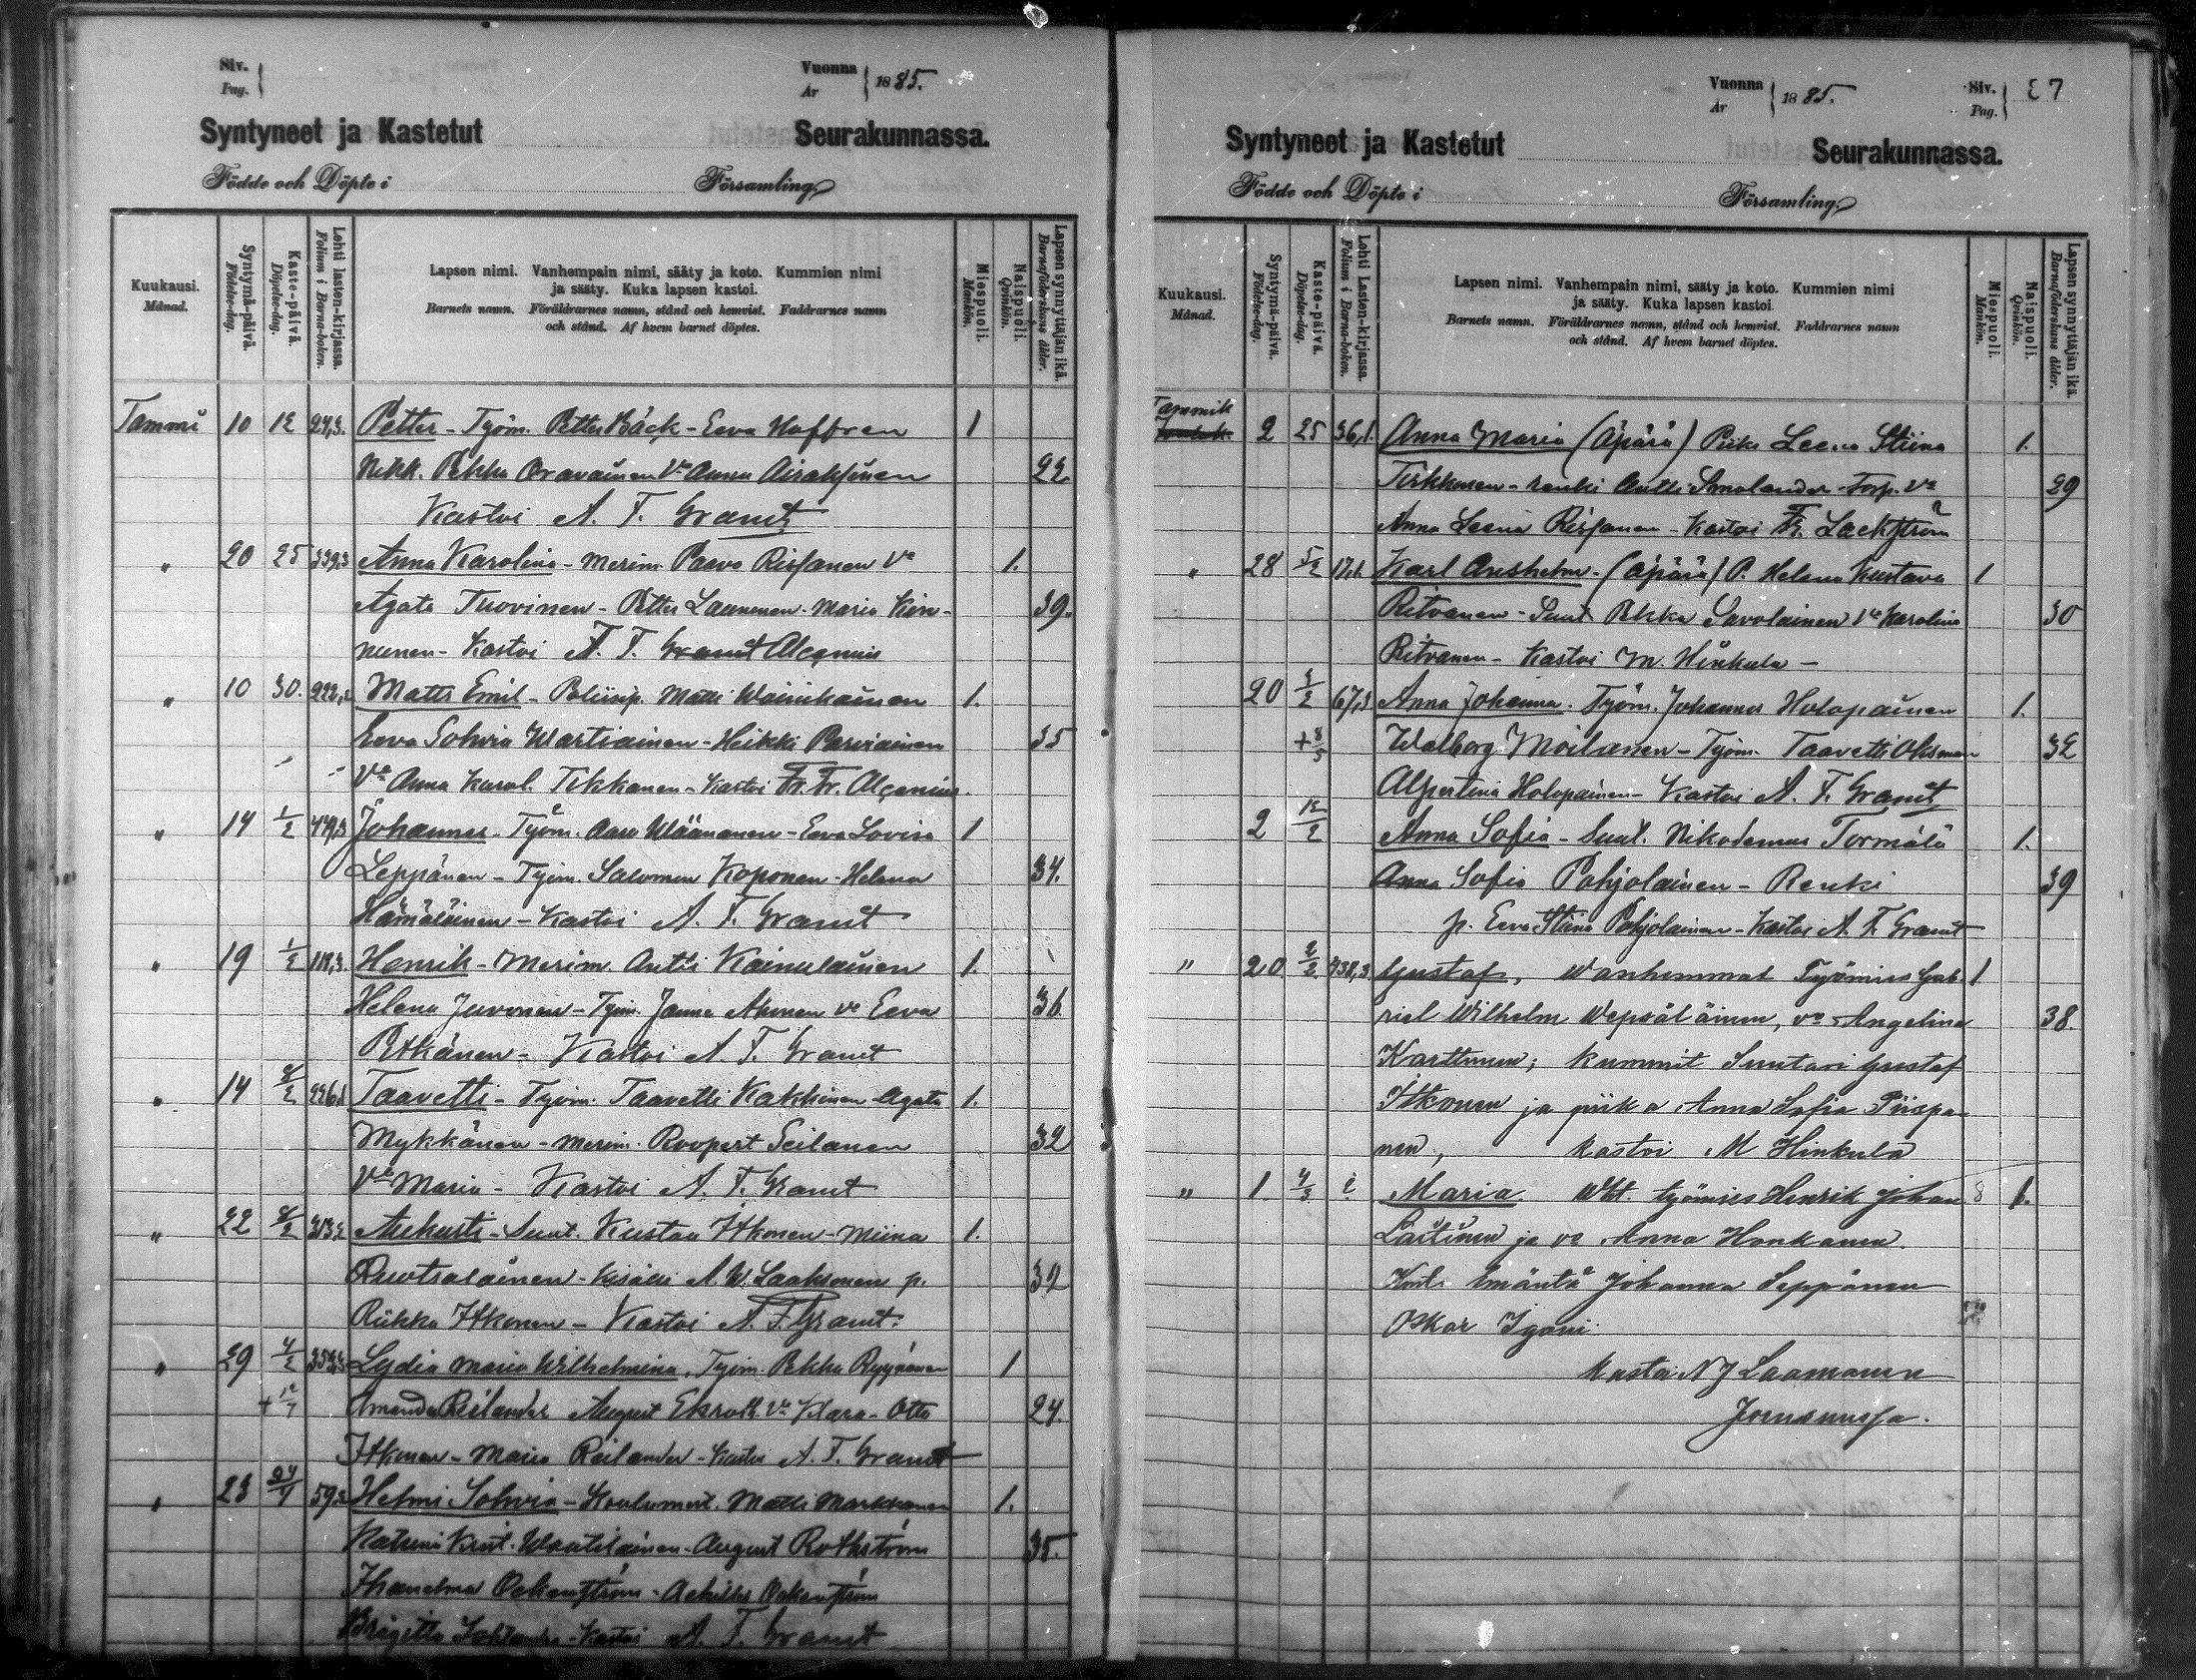 Siv.
Pag.
Vuonna
År
1885.
Syntyneet ja Kastetut Seurakunnassa.
Födde och Döpte i Församling
Kuukausi.
Månad.
Syntymä-päivä.
Födelse-dag.
Kaste-päivä.
Döpelse-dag.
Lehti lasten-kirjassa.
Folium i Barna-boken.
Lapsen nimi. Vanhempain nimi, sääty ja koto. Kummien nimi
ja sääty. Kuka lapsen kastoi.
Barnets namn. Föräldrarnes namn, stånd och hemvist. Faddrarnes namn
och stånd. Af hvem barnet döptes.
Miespuoli.
Mankön.
Naispuoli.
Qvinkön.
Lapsen synnyttäjän ikä.
Barnaföderskans ålder.
Tammi 10 12 24,3. Petter - Työm. Petter Bäck - Eeva Hoffren 1
Nikk. Pekka Oravainen Vo Anna Airaksinen 22
Kastoi A. F. Granit
" 20 25 339,3 Anna Karolina - Merim. Paavo Rissanen Vo 1.
Agata Tuovinen - Petter Laamanen - Maria Kin- 39.
nunen - Kastoi A. F. Granit Alcenius
" 10 30. Matts Emil - Poliisip. Matti Wainikainen 1.
Eeva Sohvia Wartiainen - Heikki Parviainen 35
Vo Anna Karol. Tikkanen - Kastoi Fr. Fr. Alcenius.
" 14 1/2 449,3 Johannes - Työm. Aaro Wäänänen - Eeva Lovisa 1
Leppänen - Työm. Salomon Koponen - Helena 34.
Hämäläinen - Kastoi A. F. Granit
" 19 1/2 118,3. Henrik - Merim. Antti Kainulainen 1.
Helena Juvonen - Työm. Janne Ahonen vo Eeva 36
Pitkänen - Kastoi A. F. Granit
" 14 8/2 226,1 Taavetti - Työm. Taavetti Kakkinen - Agata 1.
Mykkänen - Merim. Roopert Seilanen 32
Vo Maria - Kastoi A. F. Granit
" 22 8/2 Aukusti - Suut. Kustaa Itkonen - Miina 1.
Ruotsalainen - Kisälli A. W. Laaksonen p. 32
Riikka Itkonen - Kastoi A. F. Granit.
" 29 4/2 Lydia Maria Wilhelmina, Työm. Pekka Ryynänen 1
Amanda Reilander August Ekroth vo Klara - Otto 24.
Itkonen - Maria Reilander - Kastoi A. F. Granit
" 23 24/4 59,2 Helmi Sohvia - Koulumest. Matti Markkanen 1.
Katrina Krist. Waatilainen - August Rothström 35.
Ockenström - Achilles Ockenström
Brigitta - Kastoi A. F. Granit
Vuonna
År
1885.
Siv.
Pag.
27
Syntyneet ja Kastetut Seurakunnassa.
Födde och Döpte i Församling
Kuukausi.
Månad.
Syntymä-päivä.
Födelse-dag.
Kaste-päivä.
Döpelse-dag.
Lehti Lasten-kirjassa.
Folium i Barna-boken.
Lapsen nimi. Vanhempain nimi, sääty ja koto. Kummien nimi
ja sääty. Kuka lapsen kastoi.
Barnets namn. Föräldrarnes namn, stånd och hemvist. Faddrarnes namn
och stånd. Af hvem barnet döptes.
Miespuoli.
Mankön.
Naispuoli.
Qvinkön.
Lapsen synnyttäjän ikä.
Barnaföderskans ålder.
Tammik
2 25 36,1. Anna Maria (äpärä) Piika Leena Stiina 1.
Tirkkonen - renki Antti Smolander - Torp. Vo 29
Anna Leena Rissanen - Kastoi Fr. Lackström
" 28 5/2 17,1. Karl Anshelm - (äpärä) P. Helena Kustava 1
Ritvanen - Suut. Pekka Savolainen Vo Karolina 30
Ritvanen - Kastoi M. Hinkula -
20 67,3 Anna Johanna. Työm. Johannes Holopainen 1.
+ 8/5 Walborg Moilanen - Työm. Taavetti Oksman 32
Alpertina Holopainen - Kastoi A. F. Granit
2 12/2 Anna Sofia - Suut. Nikodemus Tormälä 1.
Anna Sofia Pohjolainen - Renki 39
p. Eeva Stina Pohjolainen - Kastoi A. F. Granit
" 20 2/2. 438,3 Gustaf, Wanhemmat Työmies Gab- 1
riel Wilhelm Wepsäläinen, vo Angelina 38.
Karttunen; kummit Suutari Gustaf
Itkonen ja piika Anna Sofia Piispa-
nen, kastoi M Hinkula
" 1. 4/3 Maria Wht. työmies Henrik Johan 1.
Laitinen ja vo Anna Honkanen.
Emäntä Johanna Seppänen
Oskar Igoni
Kastoi N J Laamanen
Joensuussa.